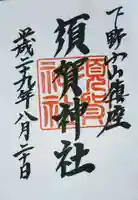 下野小山鎮座
須賀神社
平成二十九年八月二十日